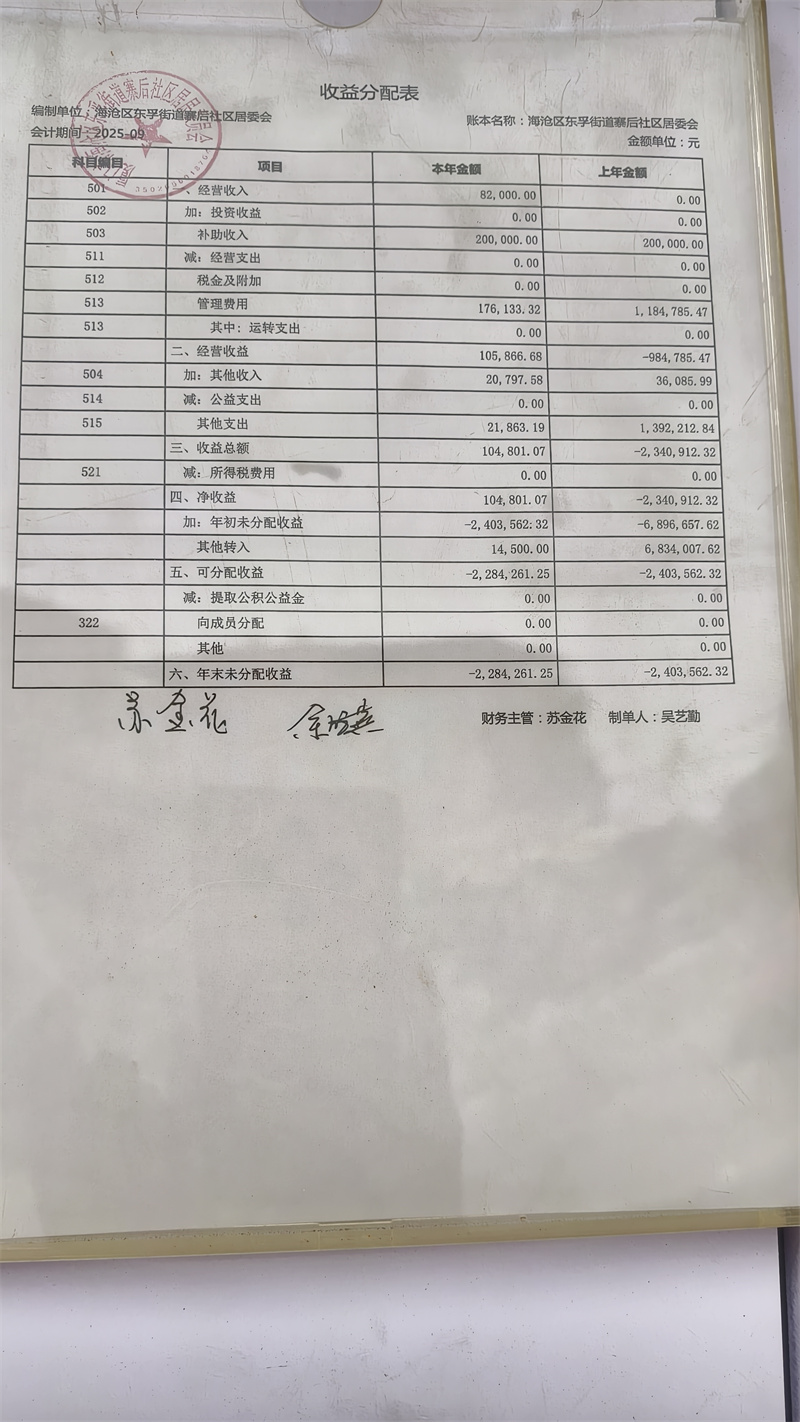 收益分配表
编制单位：海沧区东孚街道寨后社区居委会 账本名称：海沧区东孚街道寨后社区居委会
会计期间：2025-09 金额单位：元
科目编目 项目 本年金额 上年金额
501 、经营收入 82,000.00 0.00
502 加：投资收益 0.00 0.00
503 补助收入 200,000.00 200,000.00
511 减：经营支出 0.00 0.00
512 税金及附加 0.00 0.00
513 管理费用 176,133.32 1,184,785.47
513 其中：运转支出 0.00 0.00
二、经营收益 105,866.68 -984,785.47
504 加：其他收入 20,797.58 36,085.99
514 减：公益支出 0.00 0.00
515 其他支出 21,863.19 1,392,212.84
三、收益总额 104,801.07 -2,340,912.32
521 减：所得税费用 0.00 0.00
四、净收益 104,801.07 -2,340,912.32
加：年初未分配收益 -2,403,562.32 -6,896,657.62
其他转入 14,500.00 6,834,007.62
五、可分配收益 -2,284,261.25 -2,403,562.32
减：提取公积公益金 0.00 0.00
322 向成员分配 0.00 0.00
其他 0.00 0.00
六、年末未分配收益 -2,284,261.25 -2,403,562.32
苏金花
财务主管：苏金花 制单人：吴艺勤